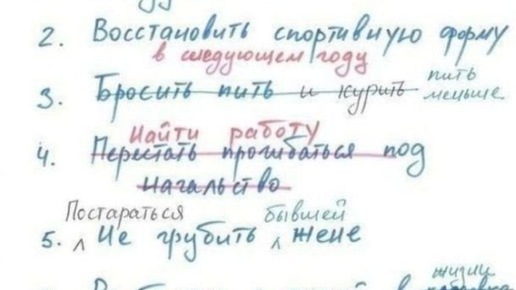 2. Восстановить спортивную форму
в следующем году
3. Бросить пить и курить пить меньше
Найти работу
4. Перестать прогибаться под
начальство
Постараться бывшей
5. Не грубить жене
жизни